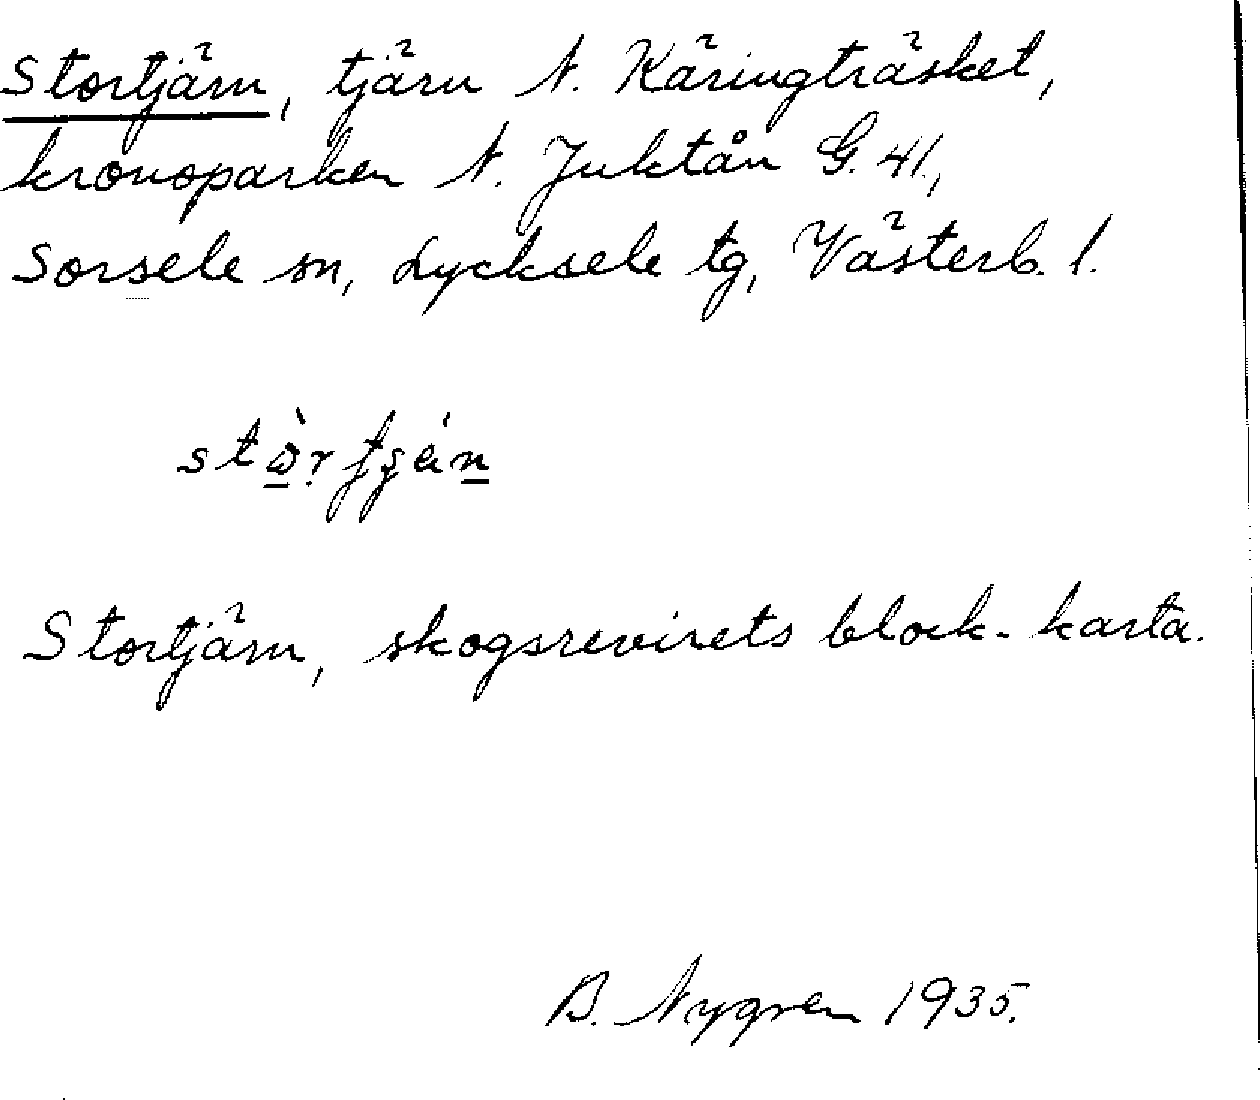 Stortjärn, tjärn N. Käringträsket,
kronoparken N. Juktån G. 41.,
Sorsele sn, Lycksele tg, Västerb. l.
Stortjärn, skogsrevirets block-karta.
B. Nygren 1935.